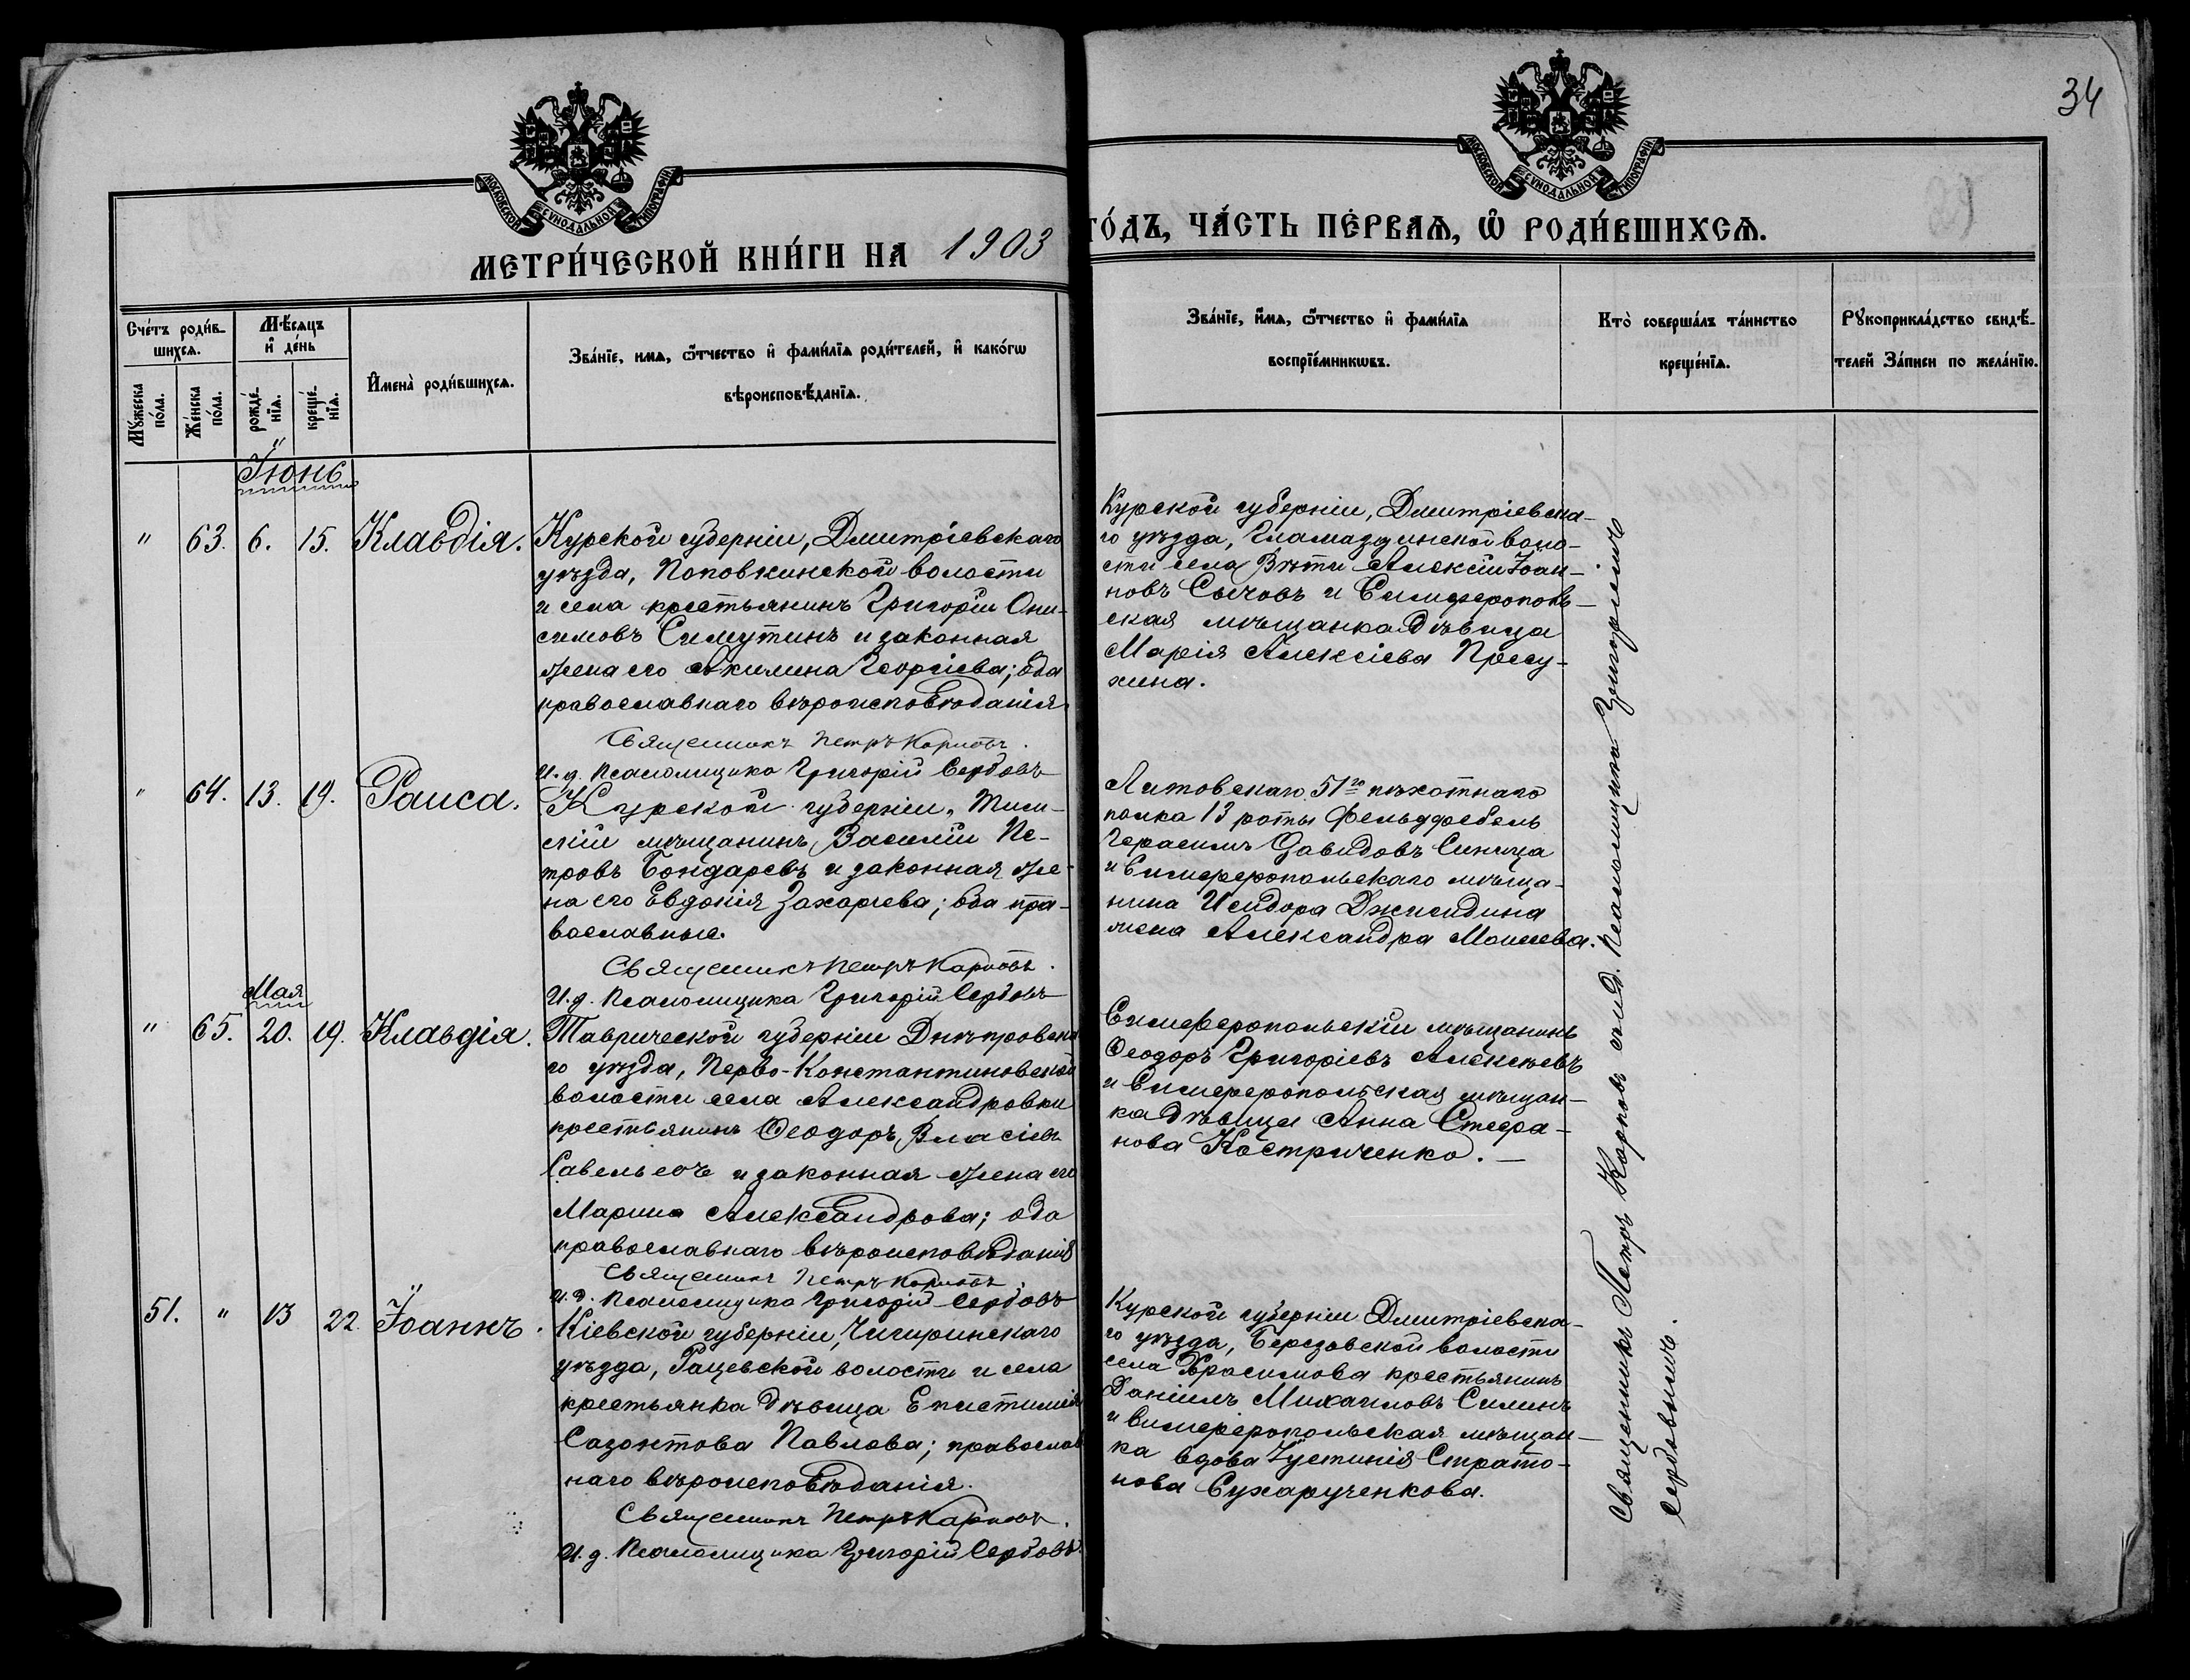 34
МОСКОВСКОЙ СѴНОДАЛЬНОЙ ТИПОГРАФІИ
МОСКОВСКОЙ СѴНОДАЛЬНОЙ ТИПОГРАФІИ
МЕТРИ́ЧЕСКОЙ КНИ́ГИ НА 1903 ГО́ДЪ, ЧА́СТЬ ПЕ́РВАѦ, Ѡ҆ РОДИ́ВШИХСѦ.
Сче́тъ роди́в-
шихсѧ.
Мꙋ́жеска
по́ла.
Же́нска
по́ла.
Мѣ́сѧцъ
и҆ де́нь
рожде́-
нїѧ.
креще́-
нїѧ.
И҆мена̀ роди́вшихсѧ.
Зва́нїе, имѧ, ѻ҆́тчество и҆ фами́лїѧ роди́телей, и҆ како́гѡ
вѣроисповѣ́данїѧ.
Зва́нїе, и҆́мѧ, ѻ҆́тчество и҆ фами́лїѧ
воспрїе́мникѡвъ.
Кто̀ соверша́лъ та́инство
креще́нїѧ.
Рꙋкоприкла́дство свидѣ́-
телей За́писи по жела́нїю.
Іюнь
" 63. 6. 15. Клавдія.
Курской губерніи, Дмитріевскаго
уѣзда, Поповкинской волости
и села крестьянинъ Григорій Они-
симовъ Симутинъ и законная
жена его Акилина Георгіева; оба
православнаго вѣроисповѣданія.
Священникъ Петръ Карповъ.
И. д. Псаломщика Григорій Сербовъ
Курской губерніи, Дмитріевска-
го уѣзда, Гламаздинской воло-
сти села Вѣти Алексій Іоан-
новъ Сычовъ и Симферополь-
ская мѣщанка дѣвица
Марія Алексіева Пресу-
хина.
" 64. 13. 19. Раиса.
Курской губерніи, Тим-
скій мѣщанинъ Василій Пе-
тровъ Бондаревъ и законная же-
на его Евдокія Захарьева; оба пра-
вославные.
Священникъ Петръ Карповъ.
И. д. Псаломщика Григорій Сербовъ
Литовскаго 51го пѣхотнаго
полка 13 роты Фельдфебель
Герасимъ Давидовъ Синица
и Симферопольскаго мѣща-
нина Исидора Джисидина
жена Александра Моисеева.
Мая
" 65. 20. 19. Клавдія.
Таврической губерніи Днѣпровска-
го уѣзда, Перво-Константиновской
волости села Александровки
крестьянинъ Ѳеодоръ Власіевъ
Савельевъ и законная жена его
Марина Александрова; оба
православнаго вѣроисповѣданія
Священникъ Петръ Карповъ
И. д. Псаломщика Григорій Сербовъ
Симферопольскій мѣщанинъ
Ѳеодоръ Григоріевъ Алексѣевъ
и Симферопольская мѣщан-
ка дѣвица Анна Стефа-
нова Костриченко.
51. " 13 22. Іоаннъ.
Кіевской губерніи, Чигиринскаго
уѣзда, Рацевской волости и села
крестьянка дѣвица Епистимія
Сазонтова Павлова; православ
наго вѣроисповѣданія.
Священникъ Петръ Карповъ.
И. д. Псаломщика Григорій Сербовъ
Курской губерніи Дмитріевска-
го уѣзда, Березовской волости
села крестьянинъ
Даніилъ Михаиловъ Силинъ
и Симферопольская мѣщан-
ка вдова Іустинія Страто-
нова Сухарученкова.
Священникъ Петръ Карповъ съ и. д. Псаломщика Григоріемъ
Сербовымъ.